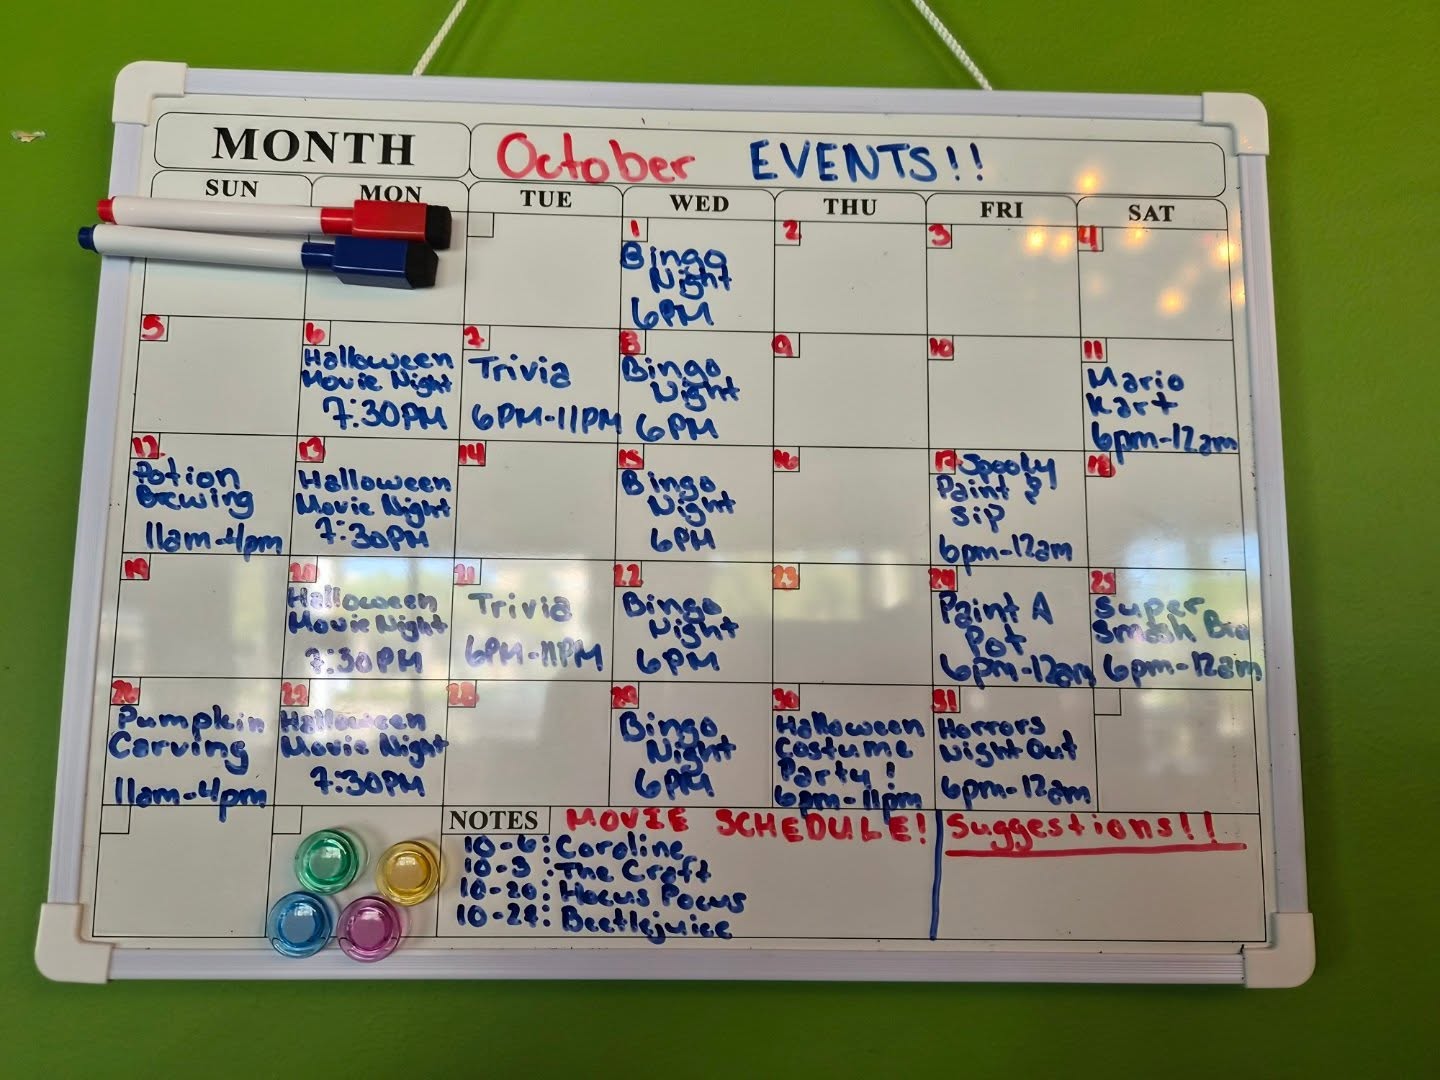 MONTH
October EVENTS!!
SUN MON TUE WED THU FRI SAT
1
Bingo
Night
6PM
2
3
4
5
6
Halloween
Movie Night
7:30PM
7
Trivia
6PM-11PM
8
Bingo
Night
6PM
9
10
11
Mario
Kart
6pm-12am
12
Potion
Brewing
11am-4pm
13
Halloween
Movie Night
7:30PM
14
15
Bingo
Night
6PM
16
17 Spooky
Paint &
Sip
6pm-12am
18
19
20
Halloween
Movie Night
7:30PM
21
Trivia
6PM-11PM
22
Bingo
Night
6PM
23
24
Paint A
Pot
6pm-12am
25
Super
Smash Bro
6pm-12am
26
Pumpkin
Carving
11am-4pm
27
Halloween
Movie Night
7:30PM
28
29
Bingo
Night
6PM
30
Halloween
Costume
Party!
6pm-11pm
31
Horrors
Night Out
6pm-12am
NOTES MOVIE SCHEDULE!
10-6: Coroline
10-3: The Craft
10-20: Hocus Pocus
10-27: Beetlejuice
Suggestions!!